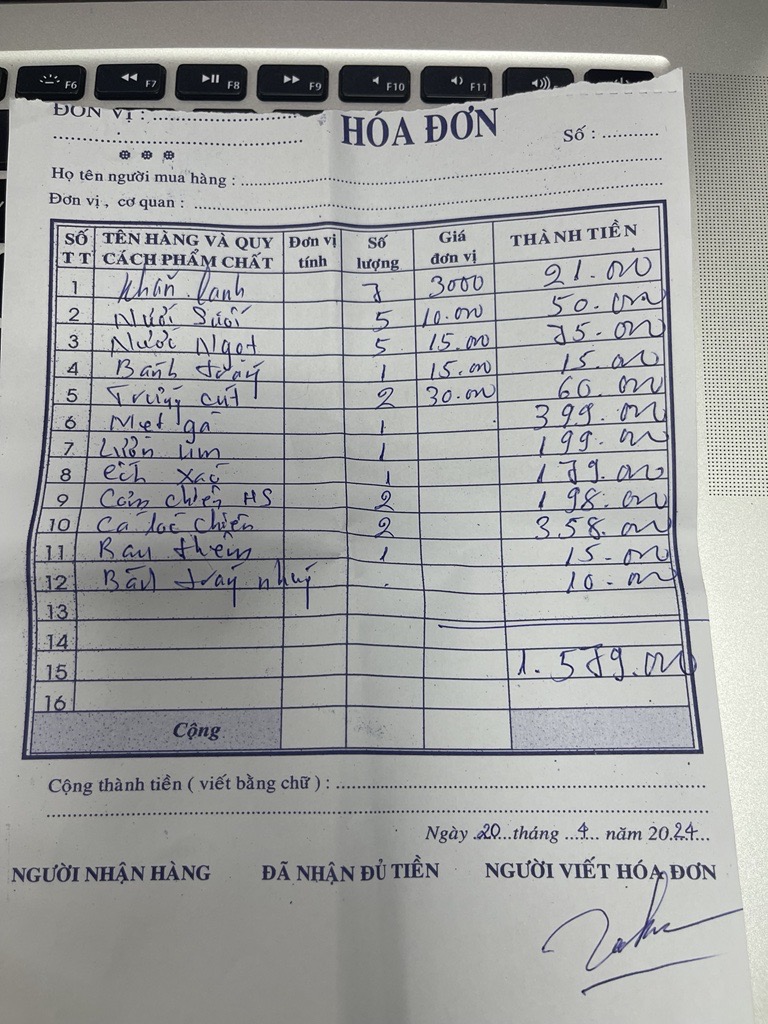 F6 F7 F8 F9 F10 F11
ĐƠN VỊ : ....................
HÓA ĐƠN
Số : ...........
Họ tên người mua hàng : ....................
Đơn vị , cơ quan : ....................
SỐ TT TÊN HÀNG VÀ QUY CÁCH PHẨM CHẤT Đơn vị tính Số lượng Giá đơn vị THÀNH TIỀN
1 Khăn lạnh 7 3000 21.000
2 Nước Suối 5 10.000 50.000
3 Nước Ngọt 5 15.000 75.000
4 Bánh tráng 1 15.000 15.000
5 Trứng cút 2 30.000 60.000
6 Mẹt gà 1 399.000
7 Lươn um 1 199.000
8 ếch xào 1 179.000
9 Cơm chiên HS 2 198.000
10 Cá lóc chiên 2 358.000
11 Rau thêm 1 15.000
12 Bánh tráng nhúng 10.000
13
14
15 1.579.000
16
Cộng
Cộng thành tiền ( viết bằng chữ ) : ....................
Ngày 20 tháng 4 năm 2024
NGƯỜI NHẬN HÀNG ĐÃ NHẬN ĐỦ TIỀN NGƯỜI VIẾT HÓA ĐƠN